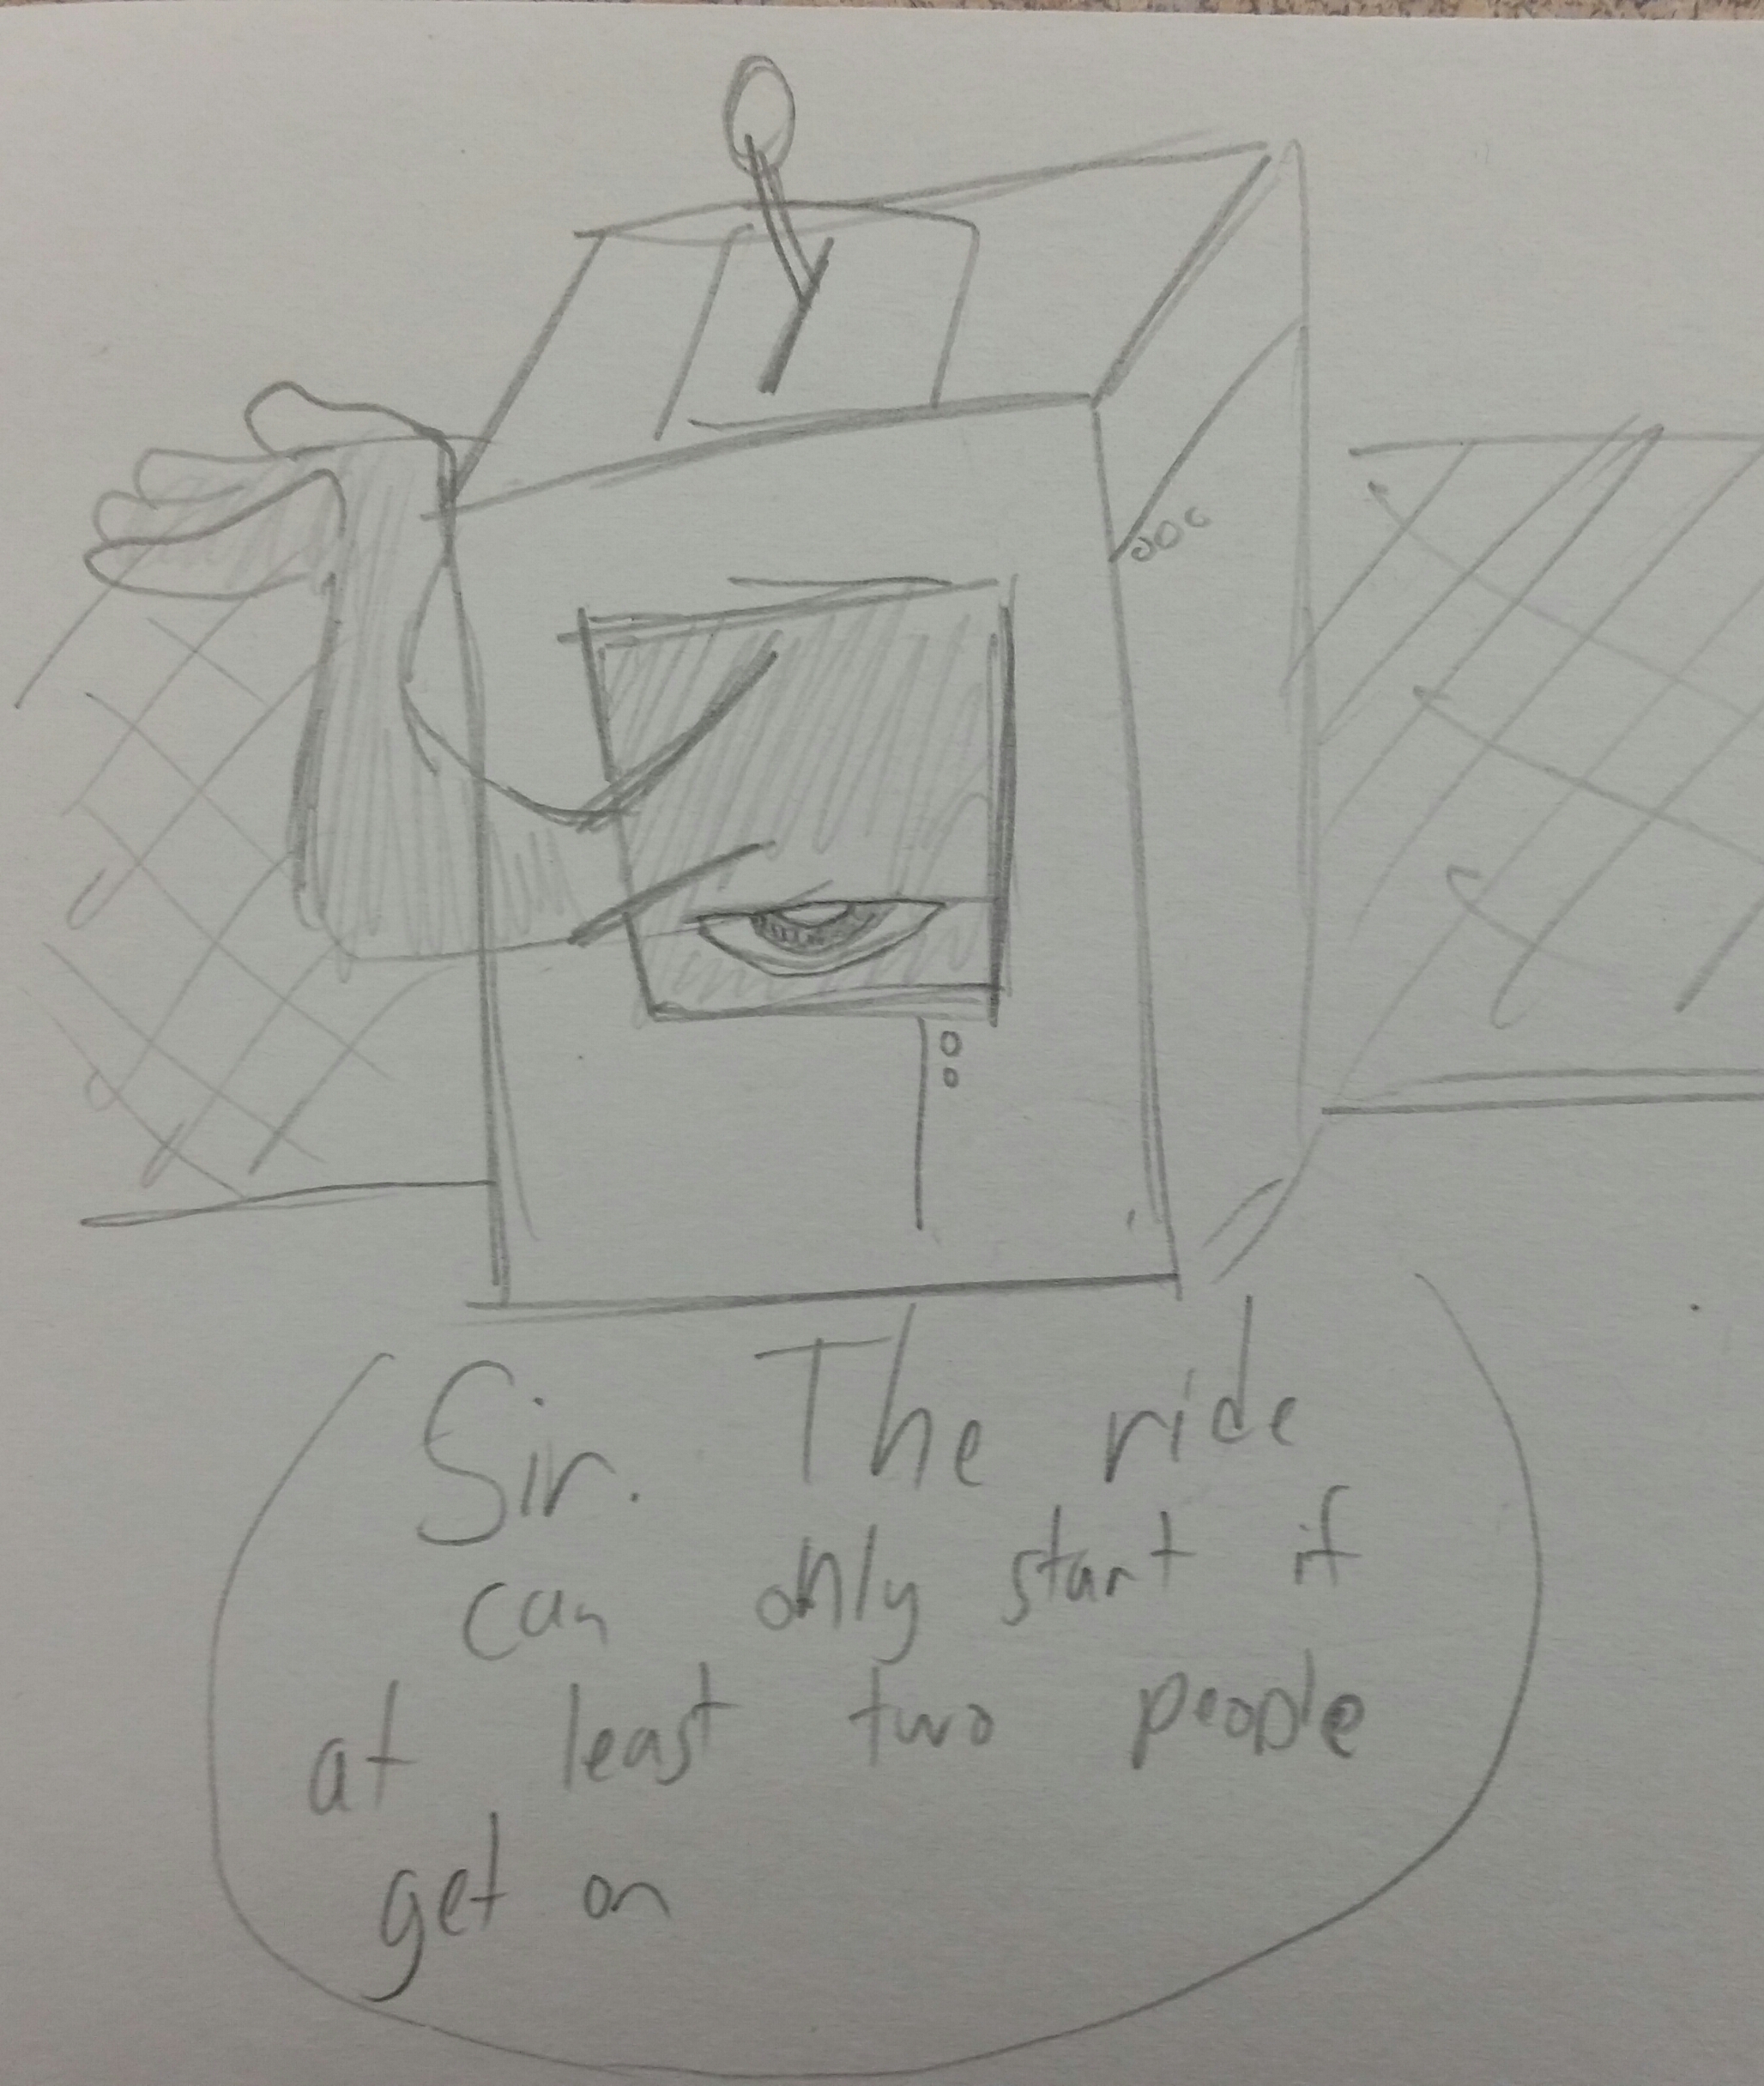 Sir. The ride
can only start if
at least two people
get on